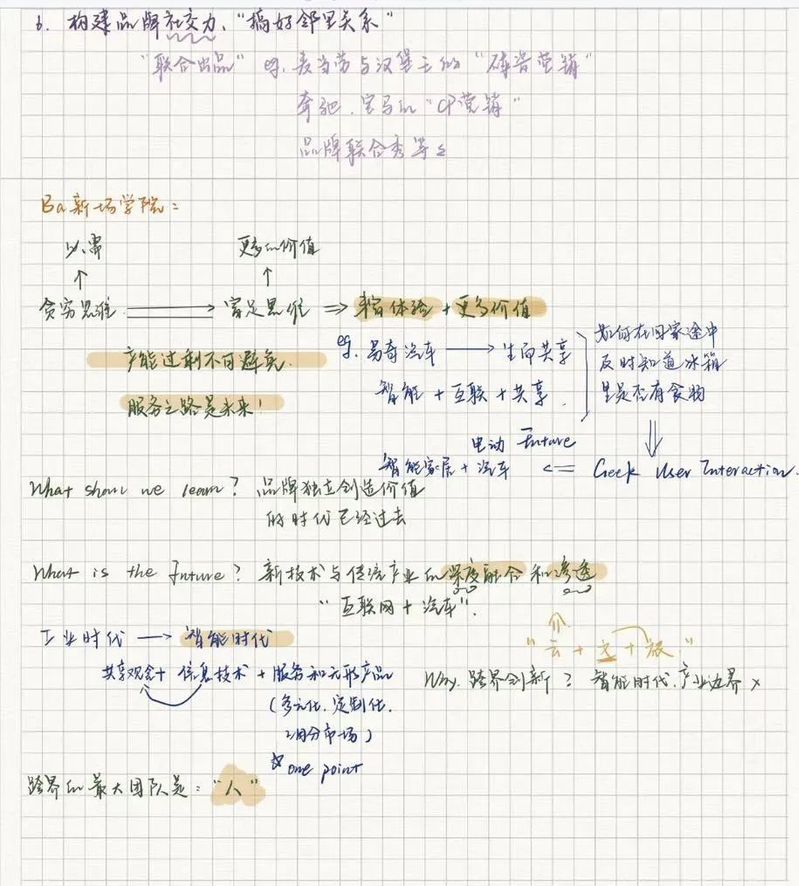 6. 构建品牌社交力、"搞好邻里关系"
"联合出品" eg. 麦当劳与汉堡王的"碰瓷营销"
奔驰、宝马的"CP营销"
品牌联合秀等
Ba新场学院:
必需 更多的价值
贫穷思维 富足思维 ⇒ 体验 + 更多价值
产能过剩不可避免.
服务之路是未来!
eg. 易奇汽车 → 生而共享
智能 + 互联 + 共享.
如何在回家途中
及时知道冰箱
里是否有食物
电动 Future
智能家居 + 汽车 <= Geek User Interaction.
What shoul we learn? 品牌独立创造价值
的时代已经过去
What is the Future? 新技术与传统产业的深度融合和渗透
"互联网+汽车".
工业时代 → 智能时代
共享观念 + 信息技术 + 服务和无形产品
(多元化. 定制化.
细分市场)
☆ one point
"云 + 文 + 旅"
Why. 跨界创新? 智能时代. 产业边界 ×
跨界的最大团队是: "人"